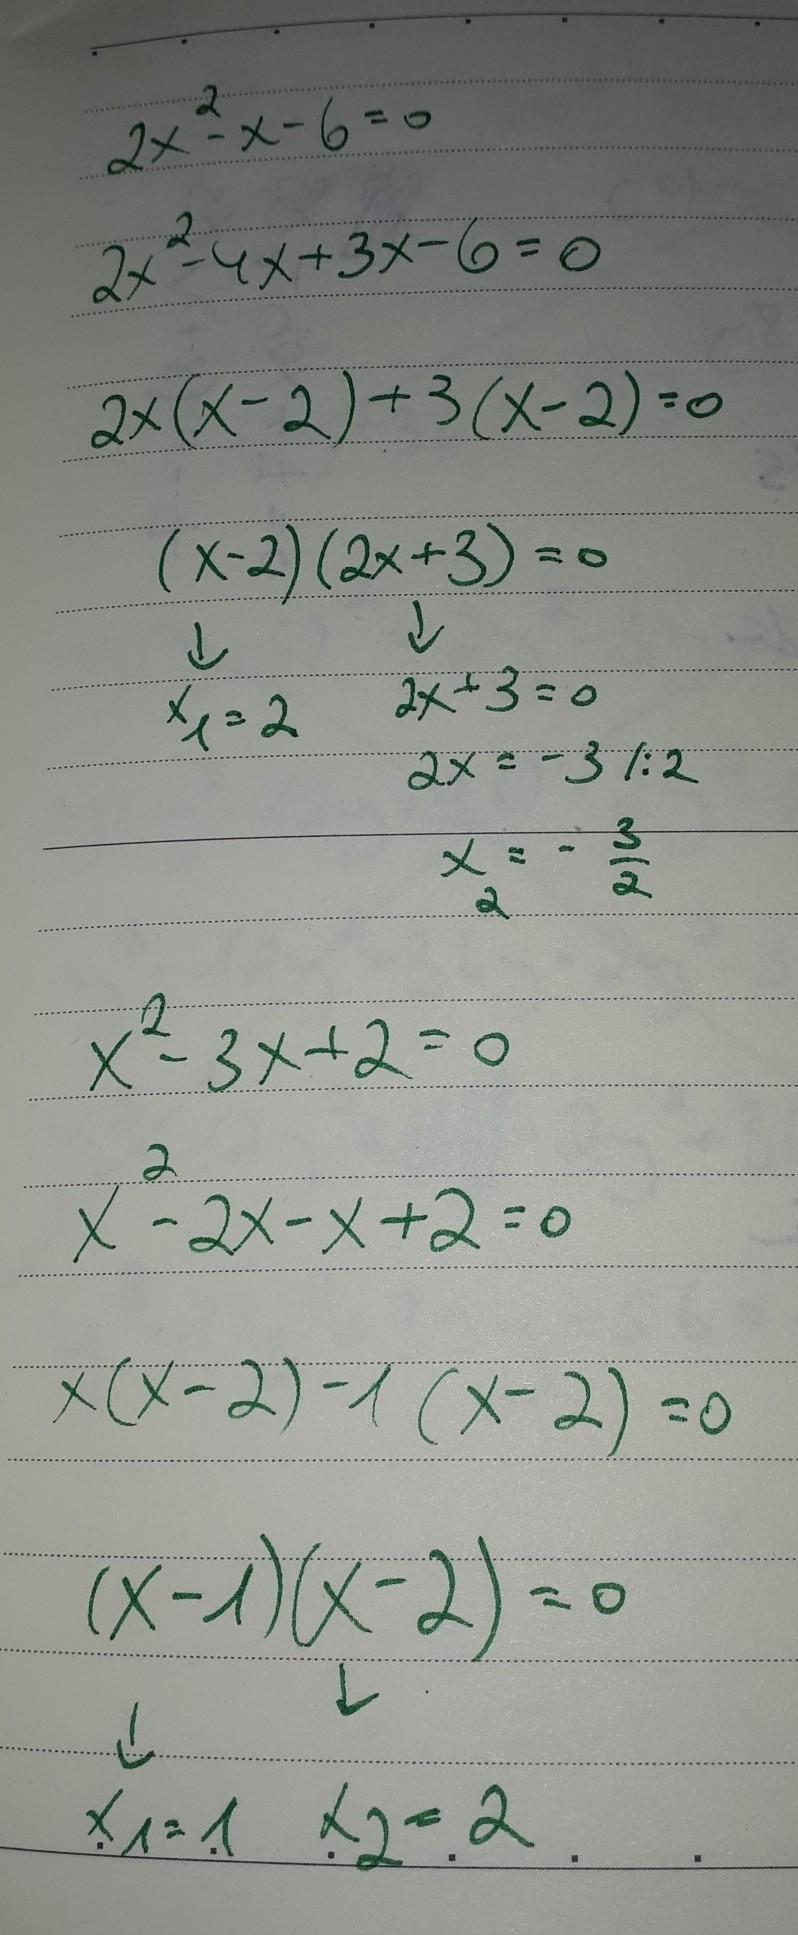 2x²-x-6=0
2x²-4x+3x-6=0
2x(x-2)+3(x-2)=0
(x-2)(2x+3)=0
↓ ↓
x₁=2 2x+3=0
2x=-3 /:2
x₂=-3/2
x²-3x+2=0
x²-2x-x+2=0
x(x-2)-1(x-2)=0
(x-1)(x-2)=0
↓ ↓
x₁=1 x₂=2